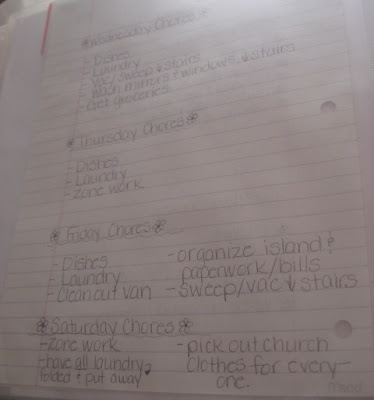 Wednesday Chores
- Dishes
- Laundry
- Vac/sweep ↓ stairs
- Wash mirrors & windows ↓ stairs
- Get groceries
Thursday Chores
- Dishes
- Laundry
- Zone work
Friday Chores
- Dishes
- Laundry
- Clean out van
- organize island &
paperwork/bills
- sweep/vac ↓ stairs
Saturday Chores
- Zone work
- have all laundry
folded & put away
- pick out church
clothes for every-
one.
mead